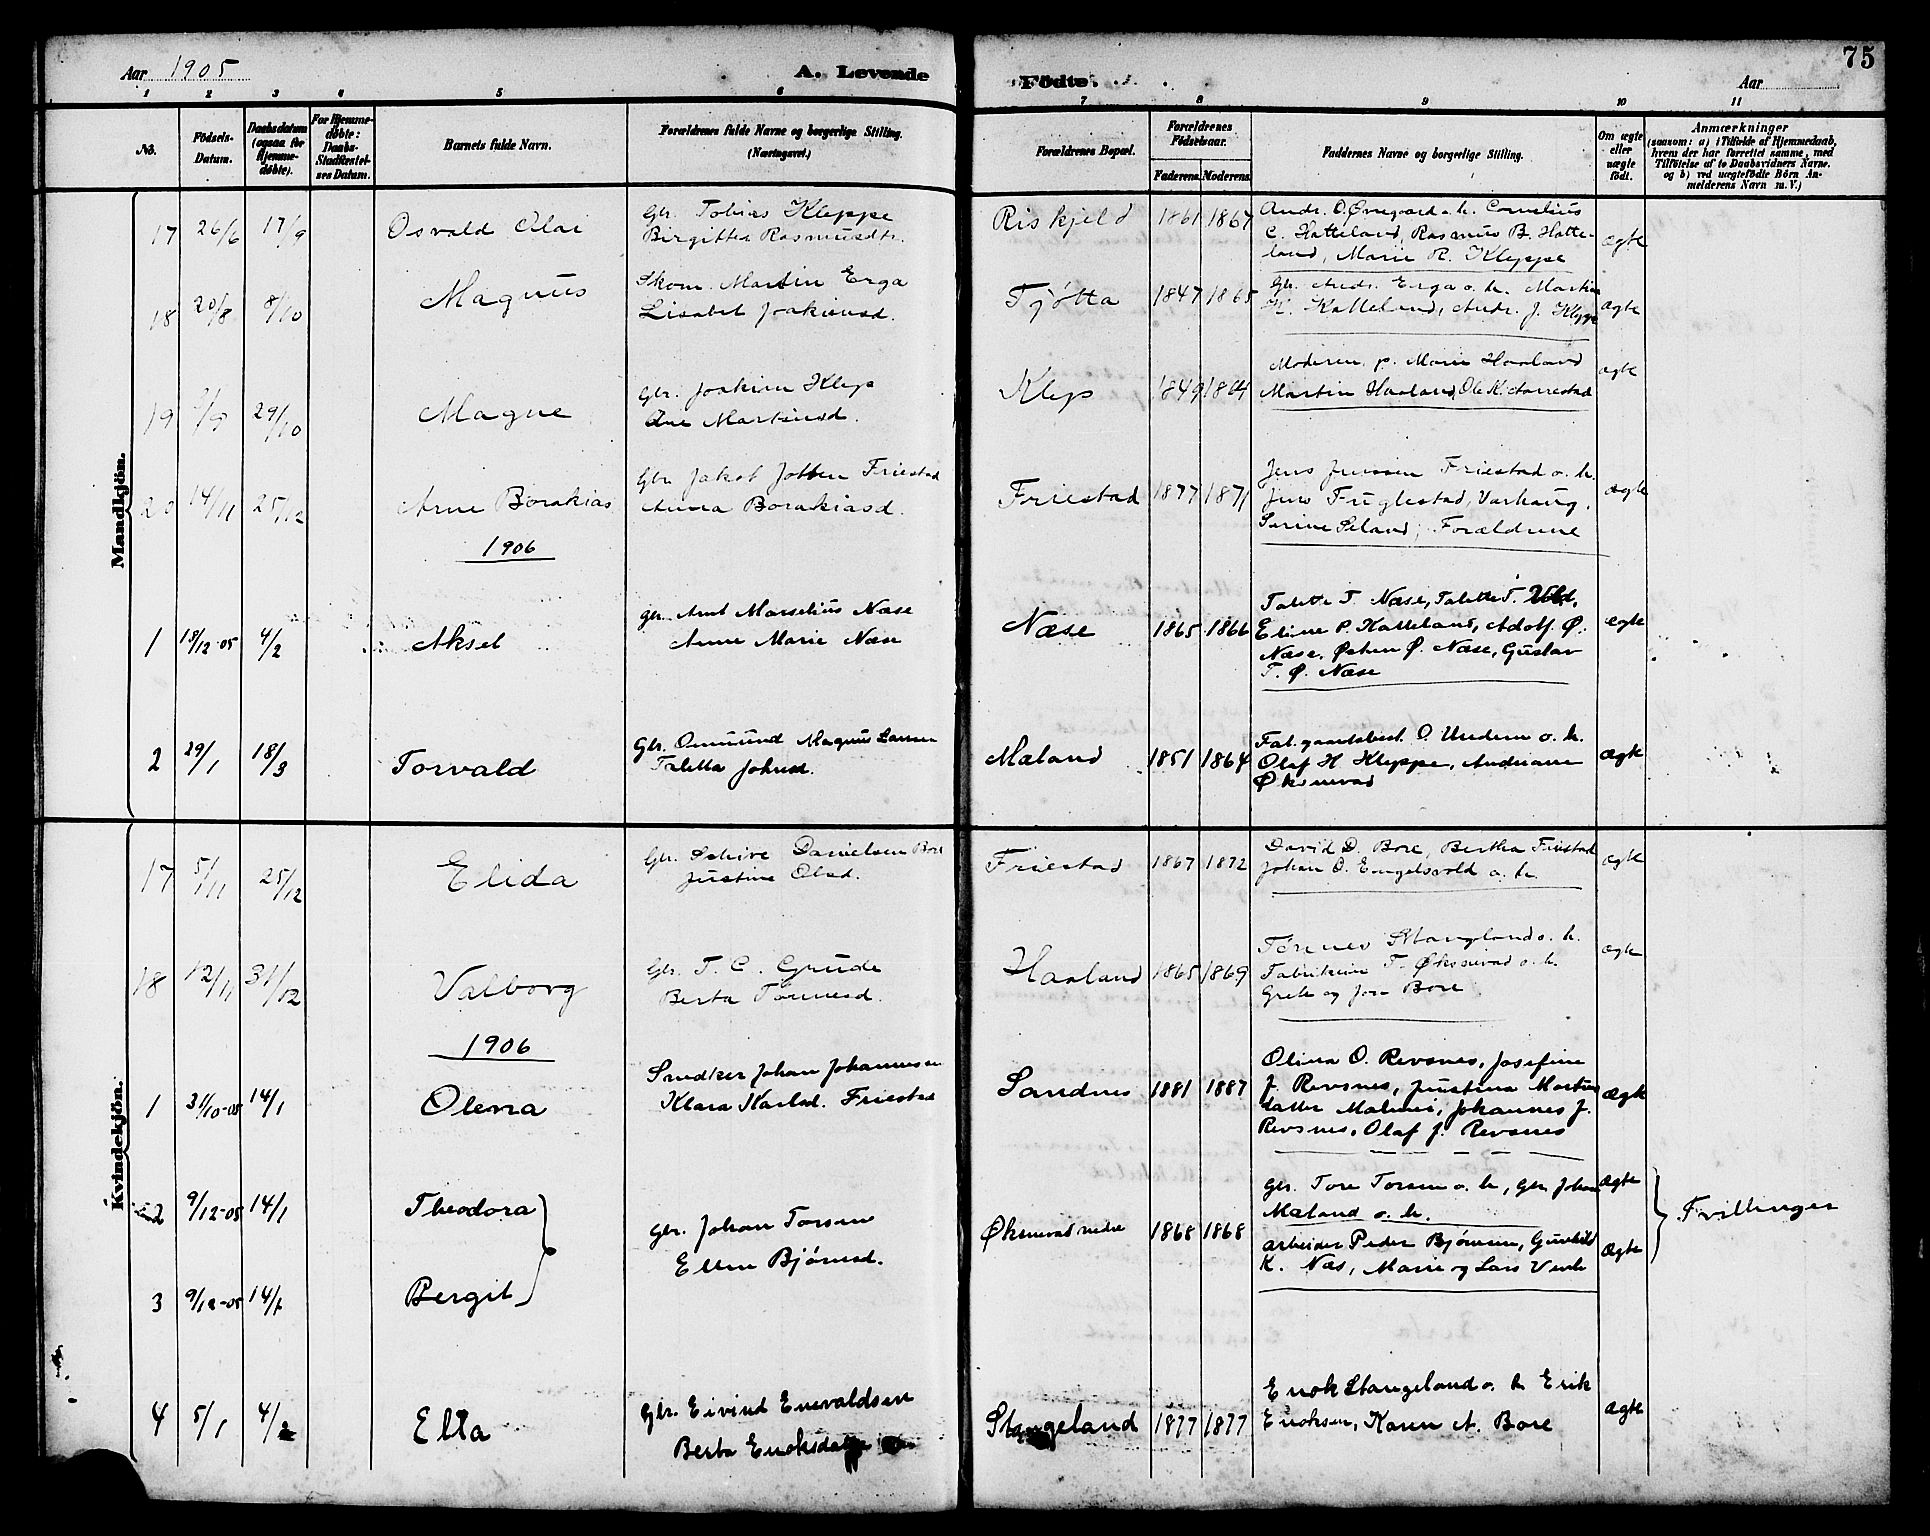 75
Aar 1905
A. Levende
Födte.
Aar
1 2 3 4 5 6 7 8 9 10 11
No.
Födsels-Datum.
Daabsdatum (ogsaa for Hjemme-døbte).
For Hjemme-døbte: Daabs-Stadfæstel-ses Datum.
Barnets fulde Navn.
Forældrenes fulde Navne og borgerlige Stilling. (Næringsvei.)
Forældrenes Bopæl.
Forældrenes Födselsaar.
Faderens Moderens
Faddernes Navne og borgerlige Stilling.
Om ægte eller uægte født.
Anmærkninger
(saasom: a) i Tilfælde af Hjemmedaab,
hvem der har forrettet samme, med
Tilföielse af to Daabsvidners Navne.
og b) ved uægtefödte Börn An-
melderens Navn m. V.)
Mandkjön.
17 26/6 17/9 Osvald Olai
Gbr. Tobias Kleppe
Birgitta Rasmusdtr.
Riskjeld 1861 1867
Andr. O. Øvregaard o. h. Cornelius
C. Hatteland, Rasmus B. Hatte-
land, Marie R. Kleppe
ægte
18 20/8 8/10 Magnus
Skom. Martin Erga
Lisabet Joakimsd.
Tjøtta 1847 1865
Gbr. Andr. Erga o. h. Martin
K. Katteland, Andr. J. Kleppe
ægte
19 /9 29/10 Magne
Gbr. Joakim Klep
Ane Martinsd.
Klep 1849 1864
Moderen, p. Marie Haaland
Martin Haaland, Ole K. Aarrestad
ægte
20 14/11 25/12 Arne Borakias
Gbr. Jakob Jotten Friestad
Anna Borakiasd.
Friestad 1877 1871
Jens Jenssen Friestad o. h.
Jens Fuglestad, Varhaug,
Serine Seland, Forældrene
ægte
1906
1 18/12-05 4/2 Aksel
Gbr. Arnt Marselius Næse
Anne Marie Næse
Næse 1865 1866
Talette T. Næse, Talette T.
Eline P. Katteland, Adolf Ø.
Næse, Østen Ø. Næse, Gustav
T. Ø. Næse
ægte
2 29/1 18/3 Torvald
Gbr. Osmund Magnus Larsen
Taletta Johnsd.
Mæland 1851 1864
Fat.gaardsbest. O. Undem o. h.
Olaf H Kleppe, Andriane
Øksnevad
ægte
Kvindekjön.
17 5/11 25/12 Elida
Gbr. Schive Danielsen Bore
Justine Olsd.
Friestad 1867 1872
David D. Bore, Bertha Friestad
Johan O. Engelsvold o. h.
ægte
18 12/11 31/12 Valborg
Gbr. T. C. Grude
Berta Tørresd.
Haaland 1865 1869
Tørres Stangeland o. h.
Fabrikeier T. Øksnevad o. h.
Grete og Jon Bore
ægte
1906
1 31/10-05 14/1 Olena
Smedker Johan Johannessen
Klara Karlsd. Friestad
Sandnes 1881 1887
Olina O. Revsnes, Josefine
J. Revsnes, Justina Martins
datter Malmei, Johannes J.
Revsnes, Olaf J. Revsnes
ægte
2 9/12-05 14/1 Theodora
Gbr. Johan Torsen
Ellen Bjørnsd.
Øksnevad nedre 1868 1868
Gbr. Tore Torsen o. h, Gbr Johan
Mæland o. h.
ægte
Tvillinger
3 9/12-05 14/1 Bergit
arbeider Peder Bjørnsen, Gunhild
K. Næs, Marie og Lars
ægte
4 5/1 4/2 Elta
Gbr. Eivind Enevaldsen
Berta Enoksdatter
Stangeland 1877 1877
Enok Stangeland o. h Erik
Enoksen, Karen A. Bore
ægte